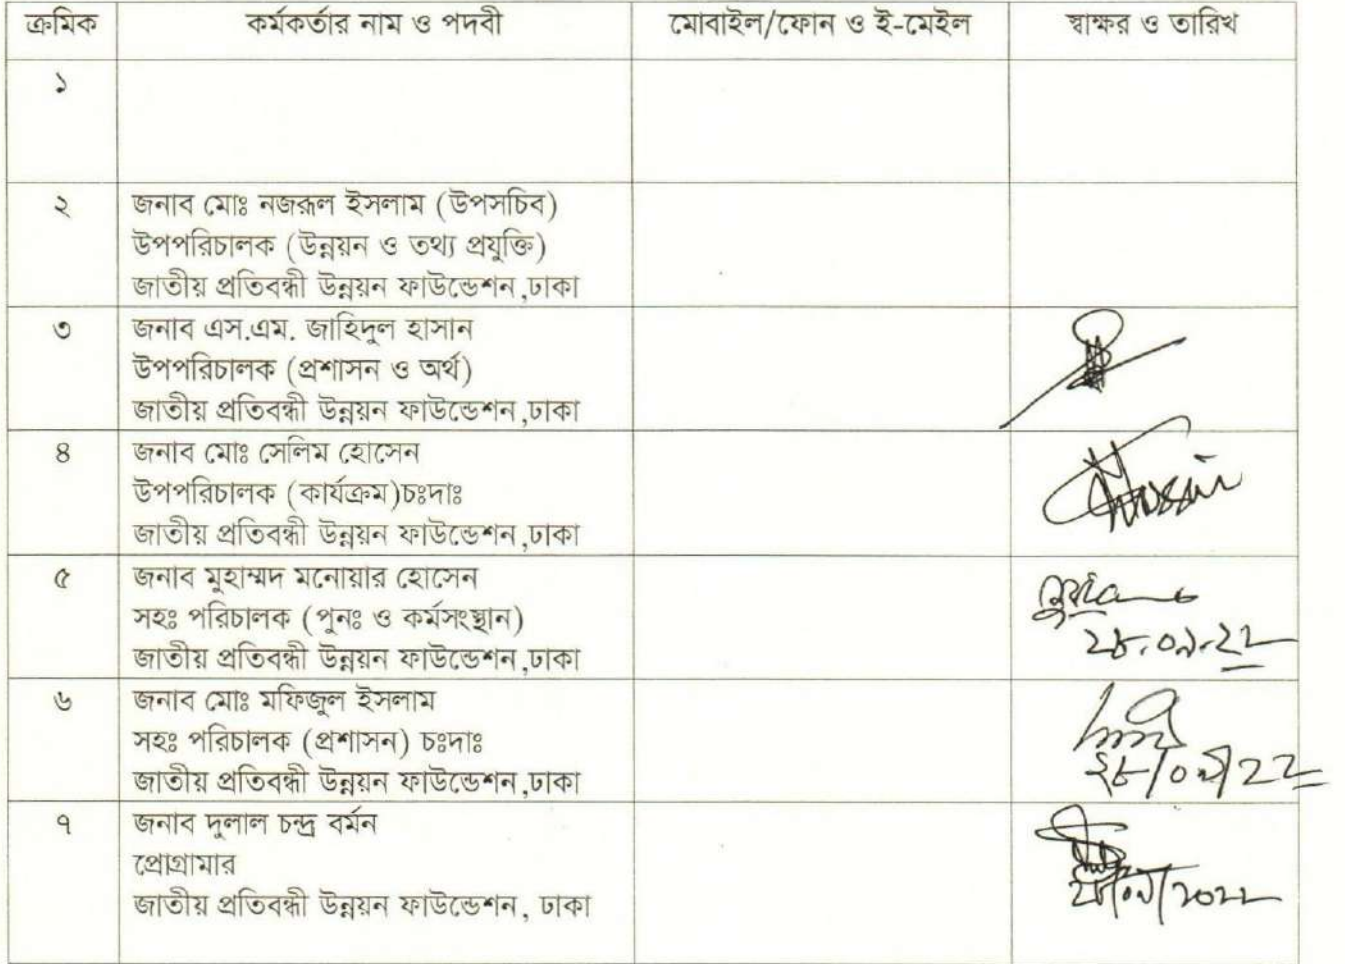 ক্রমিক কর্মকর্তার নাম ও পদবী মোবাইল/ফোন ও ই-মেইল স্বাক্ষর ও তারিখ
১
২ জনাব মোঃ নজরুল ইসলাম (উপসচিব)
উপপরিচালক (উন্নয়ন ও তথ্য প্রযুক্তি)
জাতীয় প্রতিবন্ধী উন্নয়ন ফাউন্ডেশন,ঢাকা
৩ জনাব এস.এম. জাহিদুল হাসান
উপপরিচালক (প্রশাসন ও অর্থ)
জাতীয় প্রতিবন্ধী উন্নয়ন ফাউন্ডেশন,ঢাকা
৪ জনাব মোঃ সেলিম হোসেন
উপপরিচালক (কার্যক্রম)চঃদাঃ
জাতীয় প্রতিবন্ধী উন্নয়ন ফাউন্ডেশন,ঢাকা
৫ জনাব মুহাম্মদ মনোয়ার হোসেন
সহঃ পরিচালক (পুনঃ ও কর্মসংস্থান)
২৮.০৯.২২
জাতীয় প্রতিবন্ধী উন্নয়ন ফাউন্ডেশন,ঢাকা
৬ জনাব মোঃ মফিজুল ইসলাম
সহঃ পরিচালক (প্রশাসন) চঃদাঃ
জাতীয় প্রতিবন্ধী উন্নয়ন ফাউন্ডেশন,ঢাকা ২৮/০৯/২২
৭ জনাব দুলাল চন্দ্র বর্মন
প্রোগ্রামার
জাতীয় প্রতিবন্ধী উন্নয়ন ফাউন্ডেশন, ঢাকা ২৮/০৯/২০২২